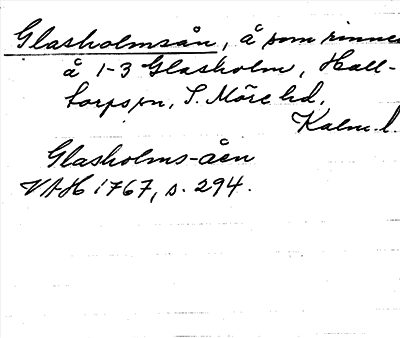 Glasholmsån, å som rinner
å 1-3 Glasholm, Hall-
torps sn, S. Möre hd,
Kalm. l.
Glasholms-åen
VAH 1767, s. 294.